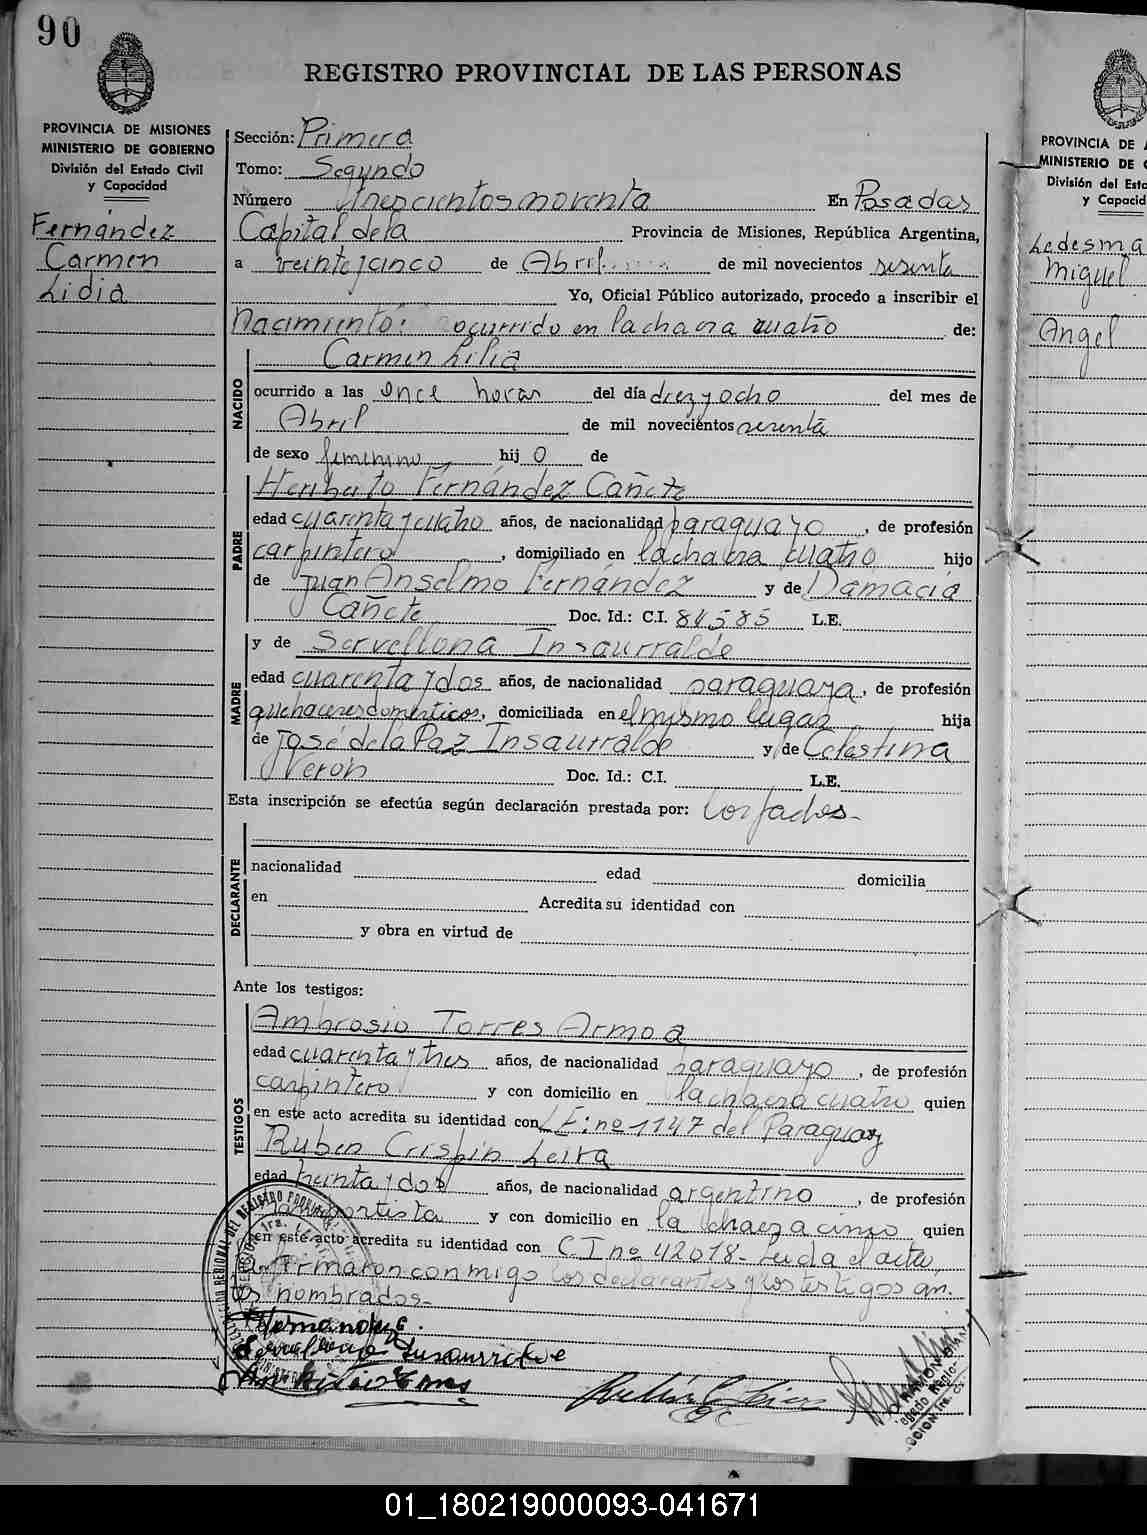 90
REGISTRO PROVINCIAL DE LAS PERSONAS
PROVINCIA DE MISIONES
MINISTERIO DE GOBIERNO
División del Estado Civil
y Capacidad
Fernández
Carmen
Lidia
Sección: Primera
Tomo: Segundo
Número trescientos noventa En Posadas
Capital de la Provincia de Misiones, República Argentina,
a veinte y cinco de Abril de mil novecientos sesenta
Yo, Oficial Público autorizado, procedo a inscribir el
Nacimiento: ocurrido en la chacra cuatro de:
Carmen Lilia
NACIDO
ocurrido a las once horas del día diez y ocho del mes de
Abril de mil novecientos sesenta
de sexo femenino hij o de
PADRE
Heriberto Fernández Cañete
edad cuarenta y cuatro años, de nacionalidad paraguayo, de profesión
carpintero, domiciliado en la chacra cuatro hijo
de Juan Anselmo Fernández y de Damacia
Cañete Doc. Id.: C.I. 84585 L.E.
y de Servellona Insaurralde
MADRE
edad cuarenta y dos años, de nacionalidad paraguaya, de profesión
quehaceres domésticos, domiciliada en el mismo lugar hija
de José de la Paz Insaurralde y de Celestina
Verón Doc. Id.: C.I. L.E.
Esta inscripción se efectúa según declaración prestada por: los padres-
DECLARANTE
nacionalidad edad domicilia
en Acredita su identidad con
y obra en virtud de
Ante los testigos:
TESTIGOS
Ambrosio Torres Armoa
edad cuarenta y tres años, de nacionalidad paraguayo, de profesión
carpintero y con domicilio en la chacra cuatro quien
en este acto acredita su identidad con L E: nº 1147 del Paraguay
Ruben Crispin Leiva
edad treinta y dos años, de nacionalidad argentino, de profesión
transportista y con domicilio en la chacra cinco quien
en este acto acredita su identidad con C I nº 42018- Leida el acta,
la firmaron conmigo los declarantes y los testigos an.
tes nombrados-
PROVINCIA DE
MINISTERIO DE
División del Esta
y Capacid
Ledesma
Miguel
Angel
01_180219000093-041671